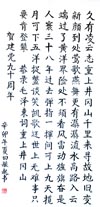 久有凌云志重上井冈山千里来寻故地旧貌变
新颜到处莺歌燕舞更有潺潺流水高路入云
端过了黄洋界险处不须看风雷动旌旗奋是
人寰三十八年过去弹指一挥间可上九天揽
月可下五洋捉鳖谈笑凯歌还世上无难事只
要肯登攀 恭录毛泽东词重上井冈山
贺建党九十周年
辛卯年夏